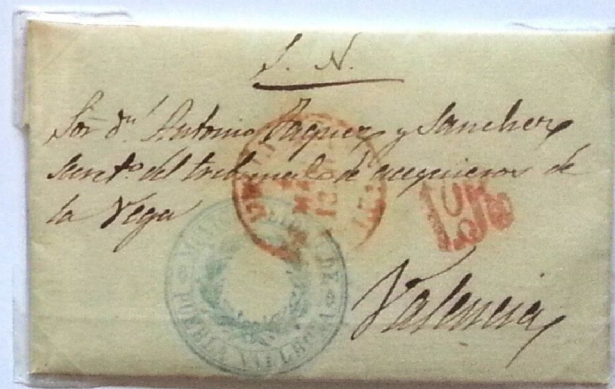 S. N.
Sor dn. Antonio Vaquez y Sanchez
Secreto. del tribunal de acequieros de
la Vega
Valencia
PUEBLA VALLBONA